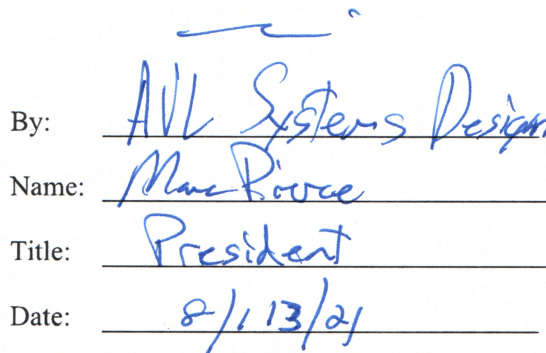 By: AVL Systems Design
Name: Marc Pierce
Title: President
Date: 8/13/21